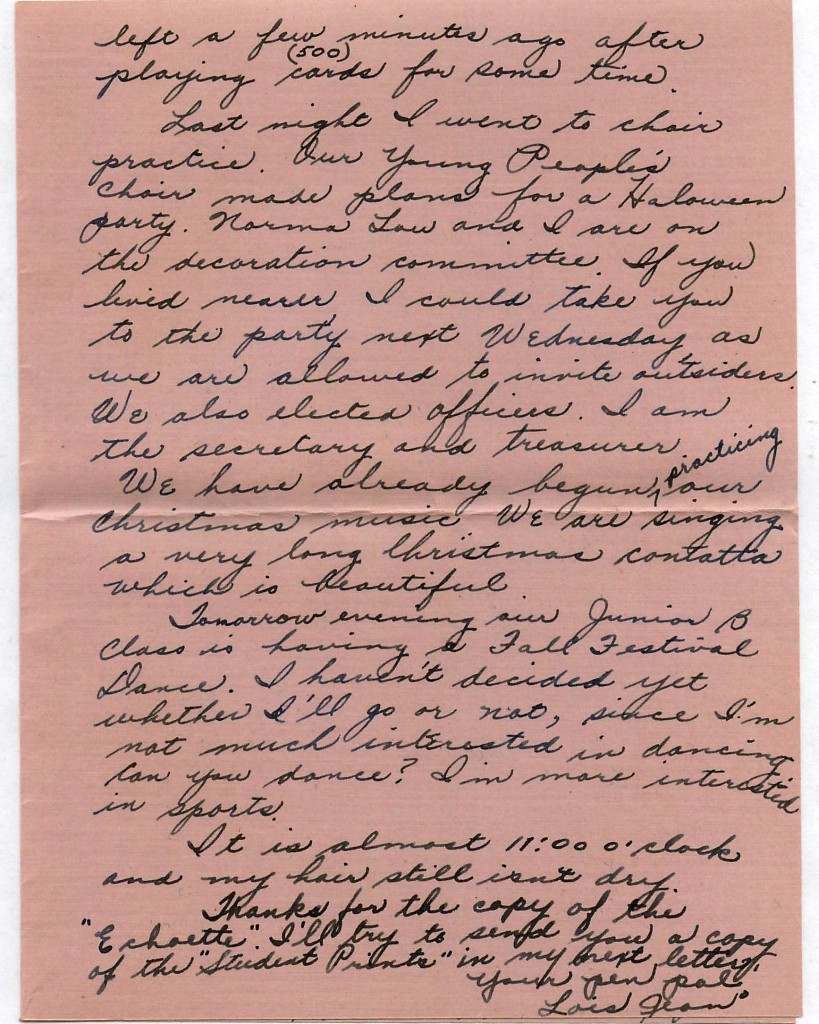 left a few minutes ago after
playing cards (500) for some time.
Last night I went to choir
practice. Our Young People's
Choir made plans for a Haloween
party. Norma Lou and I are on
the decoration committee. If you
lived nearer I could take you
to the party next Wednesday as
we are allowed to invite outsiders.
We also elected officers. I am
the secretary and treasurer.
We have already begun practicing our
Christmas music. We are singing
a very long Christmas contatta
which is beautiful
Tomorrow evening our Junior B
Class is having a Fall Festival
Dance. I haven't decided yet
whether I'll go or not, since I'm
not much interested in dancing.
Can you dance? I'm more interested
in sports.
It is almost 11:00 o'clock
and my hair still isn't dry.
Thanks for the copy of the
"Echoette". I'll try to send you a copy
of the "Student Prints" in my next letter.
Your pen pal
Lois Jean